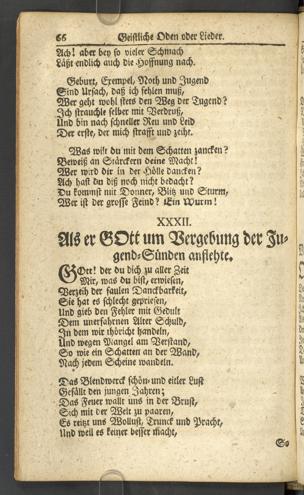 66 Geistliche Oden oder Lieder.
Ach! aber bey so vieler Schmach
Läßt endlich auch die Hoffnung nach.
Geburt, Exempel, Noth und Jugend
Sind Ursach, daß ich fehlen muß,
Wer geht wohl stets den Weg der Tugend?
Ich strauchle selber mit Verdruß,
Und bin nach schneller Reu und Leid
Der erste, der mich strafft und zeiht.
Was wilt du mit dem Schatten zancken?
Beweiß an Stärckern deine Macht!
Wer wird dir in der Hölle dancken?
Ach hast du diß noch nicht bedacht?
Du kommst mit Donner, Blitz und Sturm,
Wer ist der grosse Feind? Ein Wurm!
XXXII.
Als er GOtt um Vergebung der Ju-
gend-Sünden anflehte.
GOtt! der du dich zu aller Zeit
Mir, was du bist, erwiesen,
Verzeih der faulen Danckbarkeit,
Sie hat es schlecht gepriesen,
Und gieb den Fehler mit Gedult
Dem unerfahrnen Alter Schuld,
In dem wir thöricht handeln,
Und wegen Mangel am Verstand,
So wie ein Schatten an der Wand,
Nach jedem Scheine wandeln.
Das Blendwerck schön- und eitler Lust
Gefällt den jungen Jahren;
Das Feuer wallt uns in der Brust,
Sich mit der Welt zu paaren,
Es reitzt uns Wollust, Trunck und Pracht,
Und weil es keiner besser macht,
So